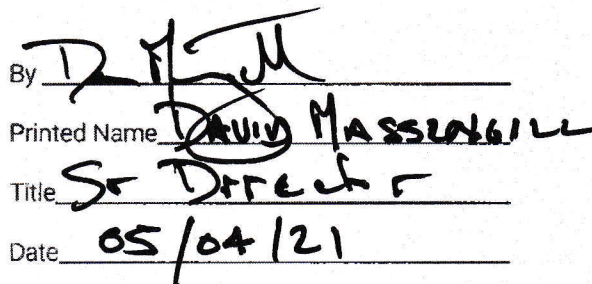 By
Printed Name DAVID MASSENGILL
Title Sr Director
Date 05/04/21